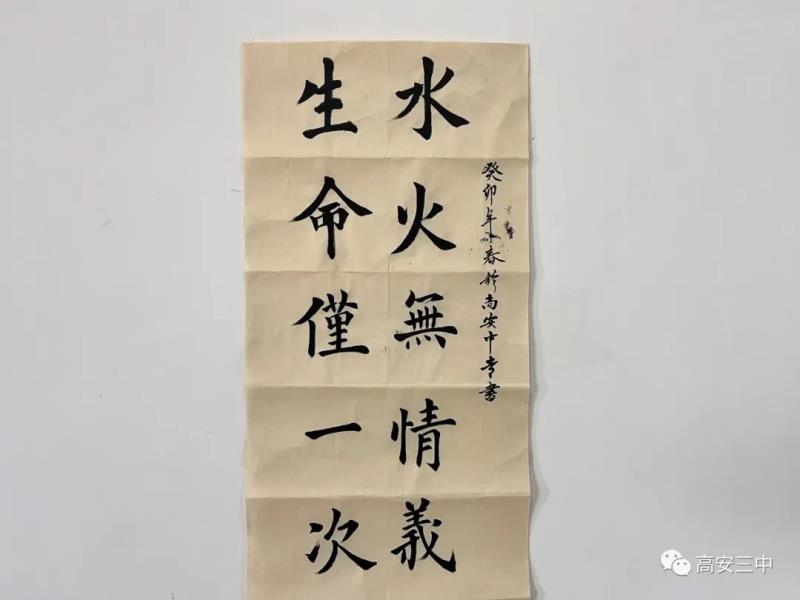 水火無情義
生命僅一次
癸卯年小春於高安中書
高安三中